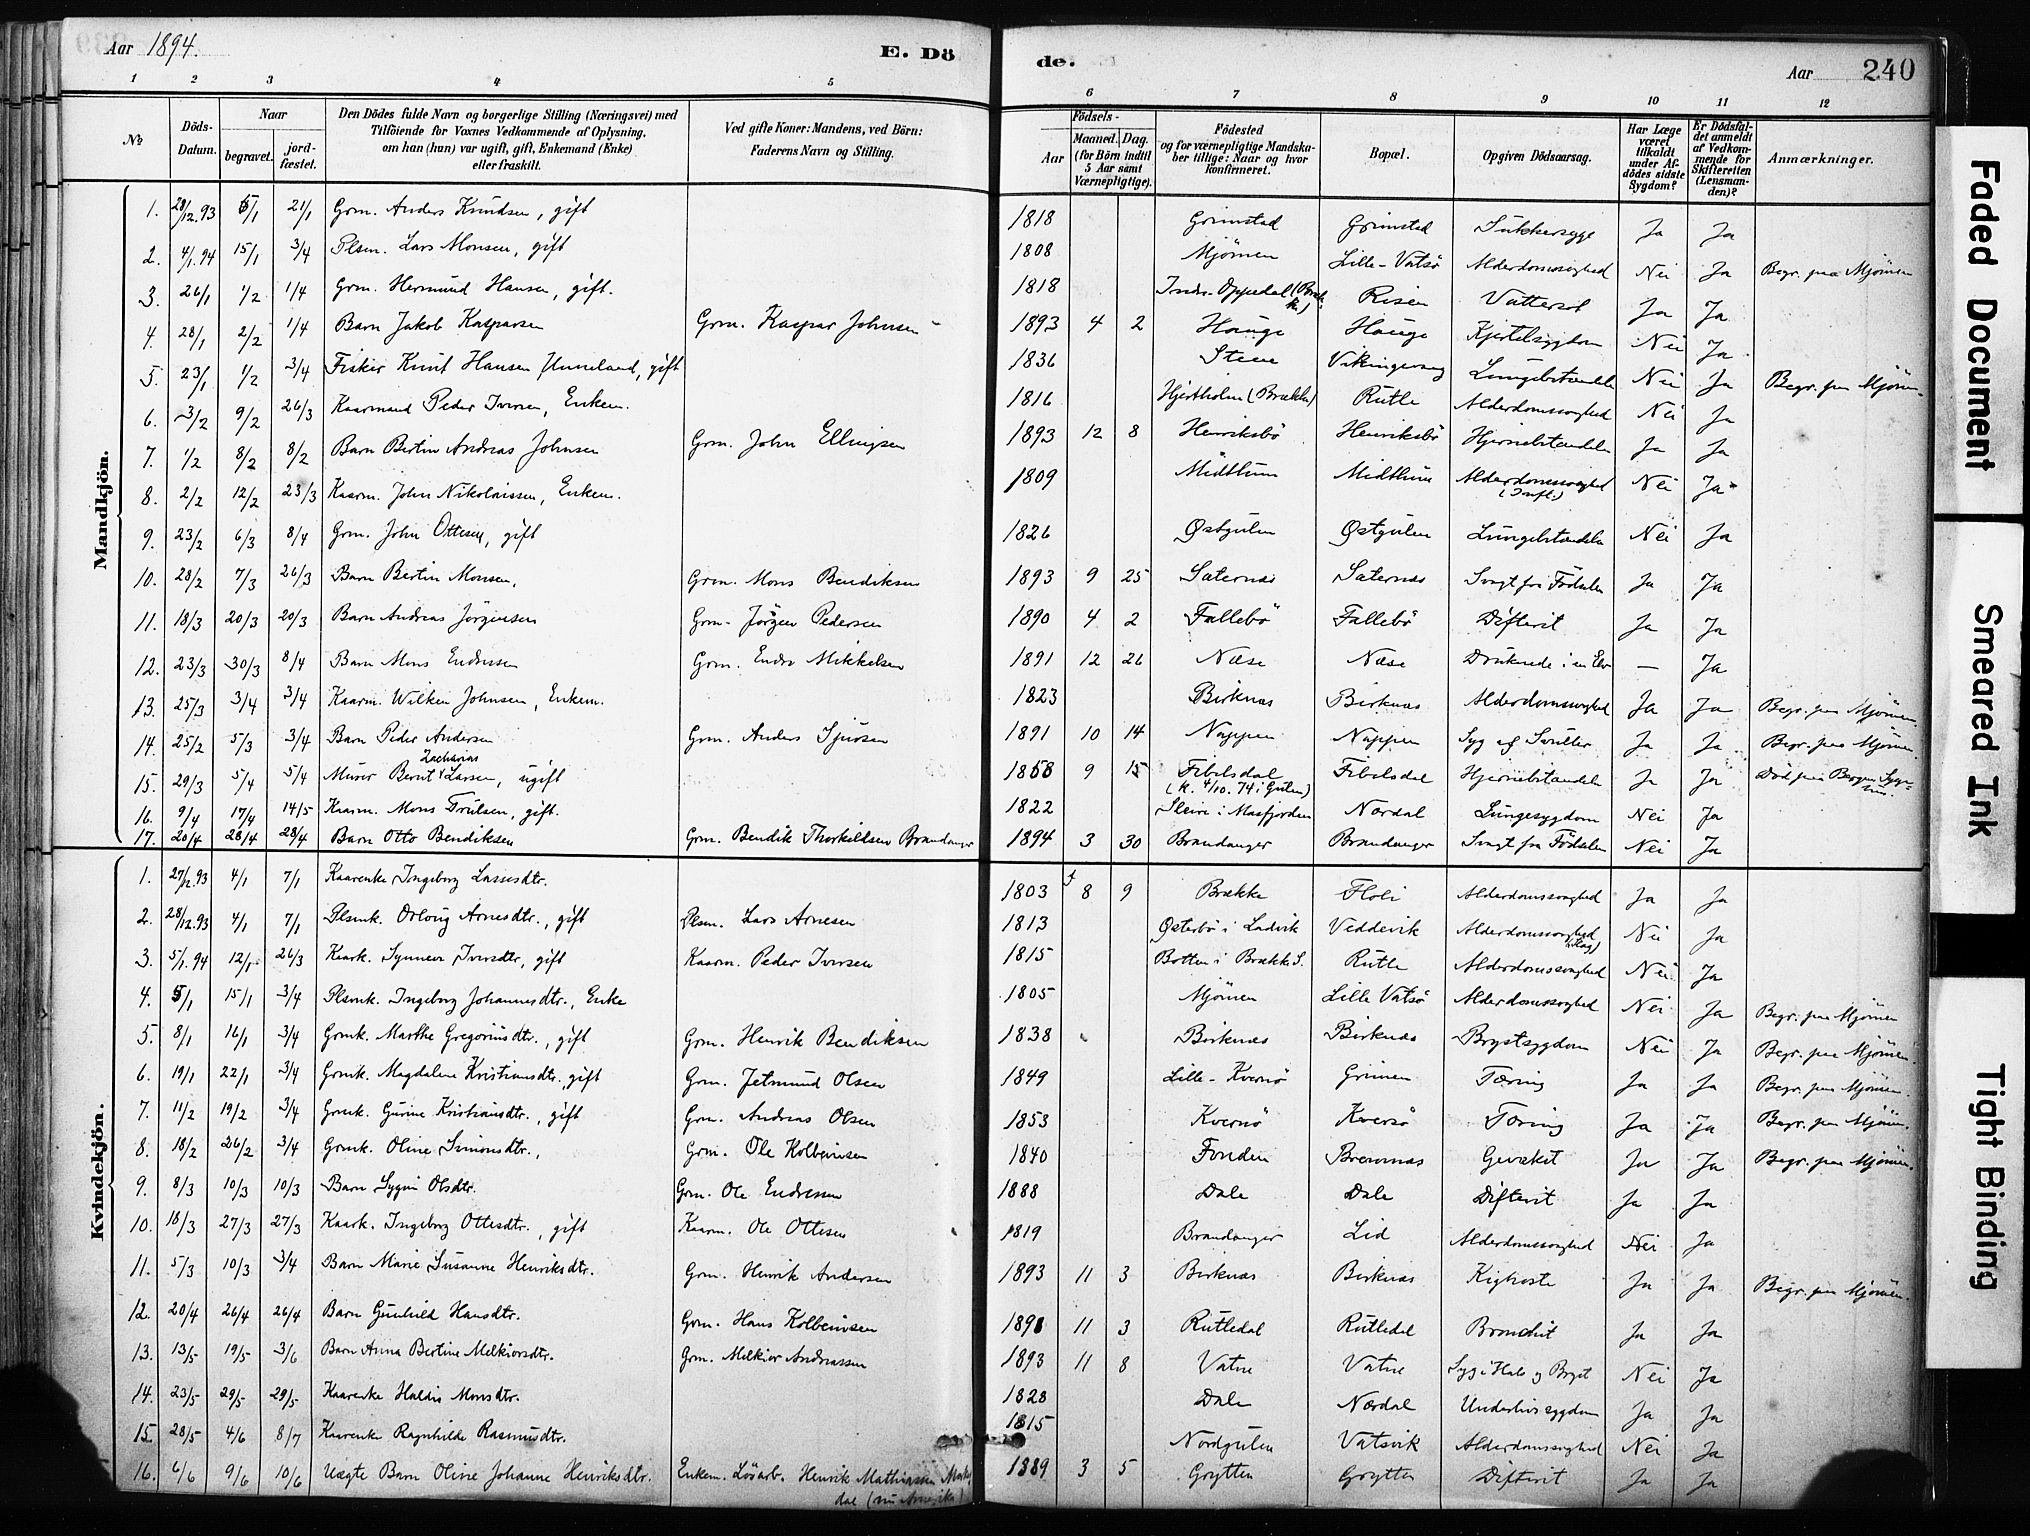 Aar 1894. E. Dö de. Aar 240
1 2 3 4 5 6 7 8 9 10 11 12
No. Döds-Datum. Naar begravet. jordfæstet. Den Dödes fulde Navn og borgerlige Stilling (Næringsvei) med Tilföiende for Voxnes Vedkommende af Oplysning, om han (hun) var ugift, gift, Enkemand (Enke) eller fraskilt. Ved gifte Koner: Mandens, ved Börn: Faderens Navn og Stilling. Födsels- Aar Maaned. Dag. (for Börn indtil 5 Aar samt Værnepligtige). Födested og for værnepligtige Mandskaber tillige: Naar og hvor konfirmeret. Bopæl. Opgiven Dödsaarsag. Har Læge været tilkaldt under Afdödes sidste Sygdom? Er Dödsfaldet anmeldt af Vedkommende for Skifteretten (Lensmanden)? Anmærkninger.
Mandkjön.
1. 28/12.93 5/1 21/1 Grm. Anders Knudsen, gift 1818 Grimstad Grimstad Sukkersyge Ja Ja
2. 4/1.94 15/1 3/4 Plsm. Lars Monsen, gift 1808 Mjömen Lille-Vatsö Alderdomssvaghed Nei Ja Begr. paa Mjömen
3. 26/1 1/2 1/4 Grm. Hermund Hansen, gift. 1818 Indre-Oppedal (Brække) Risen Vattersot Ja Ja
4. 28/1 2/2 1/4 Barn Jakob Kasparsen Grm. Kaspar Johnsen 1893 4 2 Hauge Hauge Kjertelsygdom Nei Ja
5. 23/1 1/2 3/4 Fisker Knut Hansen Unneland, gift 1836 Steine Vikingevaag Lungebetændelse Nei Ja Begr. paa Mjömen
6. 3/2 9/2 26/3 Kaarmand Peder Iversen, Enkem. 1816 Hjertholm (Brække) Rutle Alderdomssvaghed Nei Ja
7. 1/2 8/2 8/2 Barn Bertin Andreas Johnsen Grm. John Ellingsen 1893 12 8 Henriksbö Henriksbö Hjernebetændelse Ja Ja
8. 2/2 12/2 23/3 Kaarm. John Nikolaissen, Enkem. 1809 Midthun Midthun Alderdomssvaghed Nei Ja
9. 23/2 6/3 8/4 Grm. John Ottesen, gift 1826 Østgulen Østgulen Lungebetændelse Nei Ja
10. 28/2 7/3 26/3 Barn Bertin Monsen, Grm. Mons Bendiksen 1893 9 25 Sæternæs Sæternæs Svagt fra Födselen Ja Ja
11. 18/3 20/3 20/3 Barn Andreas Jörgensen Grm. Jörgen Pedersen 1890 4 2 Fallebö Fallebö Difterit Ja Ja
12. 23/3 30/3 8/4 Barn Mons Endresen Grm. Endre Mikkelsen 1891 12 26 Næse Næse Druknede i en Elv — Ja
13. 25/3 3/4 3/4 Kaarm. Wilken Johnsen, Enkem. 1823 Birknæs Birknæs Alderdomssvaghed Ja Ja Begr. paa Mjömen
14. 25/2 5/3 3/4 Barn Peder Andersen Grm. Anders Sjursen 1891 10 14 Nappen Nappen Syg af Svulter Ja Ja Begr. paa Mjömen
15. 29/3 5/4 5/4 Murer Bernt Zacharias Larsen, ugift 1858 9 15 Febelsdal (k. 4/10.74 i Gulen) Febelsdal Hjernebetændelse Ja Ja Död paa Bergens Sygehus
16. 9/4 17/4 14/5 Kaarm. Mons Trulsen, gift. 1822 Sleire i Masfjorden Nordal Lungesygdom Nei Ja
17. 20/4 28/4 28/4 Barn Otto Bendiksen Grm. Bendik Thorkildsen Brandanger 1894 3 30 Brandanger Brandanger Svagt fra Födselen Nei Ja
Kvindekjön.
1. 27/12.93 4/1 7/1 Kaarenke Ingeborg Lassesdtr. 1803 8 9 Brække Floli Alderdomssvaghed Ja Ja
2. 28/12.93 4/1 7/1 Plsmk. Orloug Arnesdtr., gift Plsm. Lars Arnesen 1813 Østerbö i Ladvik Veddevik Alderdomssvaghed Nei Ja
3. 5/1.94 12/1 26/3 Kaark. Synneva Iversdtr., gift Kaarm. Peder Iversen 1815 Botten i Brække S. Rutle Alderdomssvaghed Nei Ja
4. 5/1 15/1 3/4 Plsmk. Ingeborg Johannesdtr., Enke 1805 Mjömen Lille Vatsö Alderdomssvaghed Nei Ja Begr. paa Mjömen
5. 8/1 16/1 3/4 Grmk. Marthe Gregoriusdtr., gift Grm. Henrik Bendiksen 1838 Birknæs Birknæs Brystsygdom Nei Ja Begr. paa Mjömen.
6. 19/1 22/1 3/4 Grmk. Magdalene Kristiansdtr., gift Grm. Jetmund Olsen 1849 Lille-Kvernö Grimen Tæring Ja Ja Begr. paa Mjömen.
7. 11/2 19/2 3/4 Grmk. Gurine Kristiansdtr., gift Grm. Andreas Olsen 1853 Kvernö Kversö Tæring Ja Ja Begr. paa Mjömen.
8. 18/2 26/2 3/4 Grmk. Oline Simonsdtr., Grm. Ole Kolbeinsen 1840 Fonden Bremnæs Ja Ja Begr. paa Mjömen.
9. 8/3 10/3 10/3 Barn Sygni Olsdtr. Grm. Ole Endresen 1888 Dale Dale Difterit Ja Ja
10. 18/3 27/3 27/3 Kaark. Ingeborg Ottesdtr., gift Kaarm. Ole Ottesen 1819 Brandanger Lid Alderdomssvaghed Nei Ja
11. 5/3 10/3 3/4 Barn Marie Susanne Henriksdtr. Grm. Henrik Andersen 1893 11 3 Birknæs Birknæs Kighoste Ja Ja Begr. paa Mjömen.
12. 20/4 26/4 26/4 Barn Gunhild Hansdtr. Grm. Hans Kolbeinsen 1891 11 3 Rutledal Rutledal Bronchit Ja Ja
13. 13/5 19/5 3/6 Barn Anna Bertine Melkiorsdtr. Grm. Melkior Andreassen 1893 11 8 Vatne Vatne Syg i Hals og Bryst Nei Ja
14. 23/5 29/5 29/5 Kaarenke Haldis Monsdtr. 1828 Dale Nordal Underlivssygdom Ja Ja
15. 28/5 4/6 8/7 Kaarenke Ragnhilde Rasmusdtr. 1815 Nordgulen Vatsvik Alderdomssvaghed Nei Ja
16. 6/6 9/6 10/6 Uægte Barn Oline Johanne Henriksdtr. Enkem. Lösarb. Henrik Mathiassen (nu Amerika) 1889 3 5 Grytten Grytten Difterit Ja Ja
Faded Document
Smeared Ink
Tight Binding